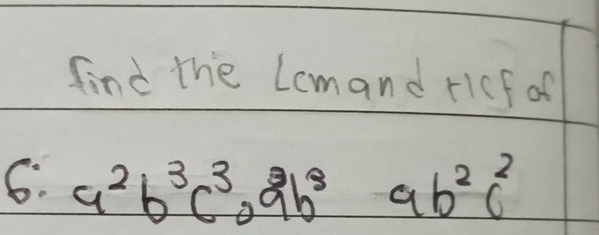 find the Lcm and HCF of
6. a²b³c³, a³b³ ab²c²